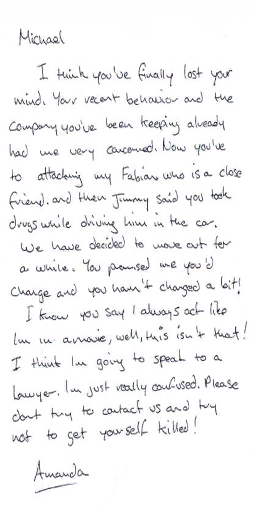 Michael
I think you've finally lost your
mind. Your recent behavior and the
company you've been keeping already
had me very concerned. Now you've
to attacking my Fabian who is a close
friend. and then Jimmy said you took
drugs while driving him in the car.
We have decided to move out for
a while. You promised me you'd
change and you havn't changed a bit!
I know you say I always act like
I'm in a movie, well, this isn't that!
I think I'm going to speak to a
lawyer. I'm just really confused. Please
dont try to contact us and try
not to get yourself killed!
Amanda